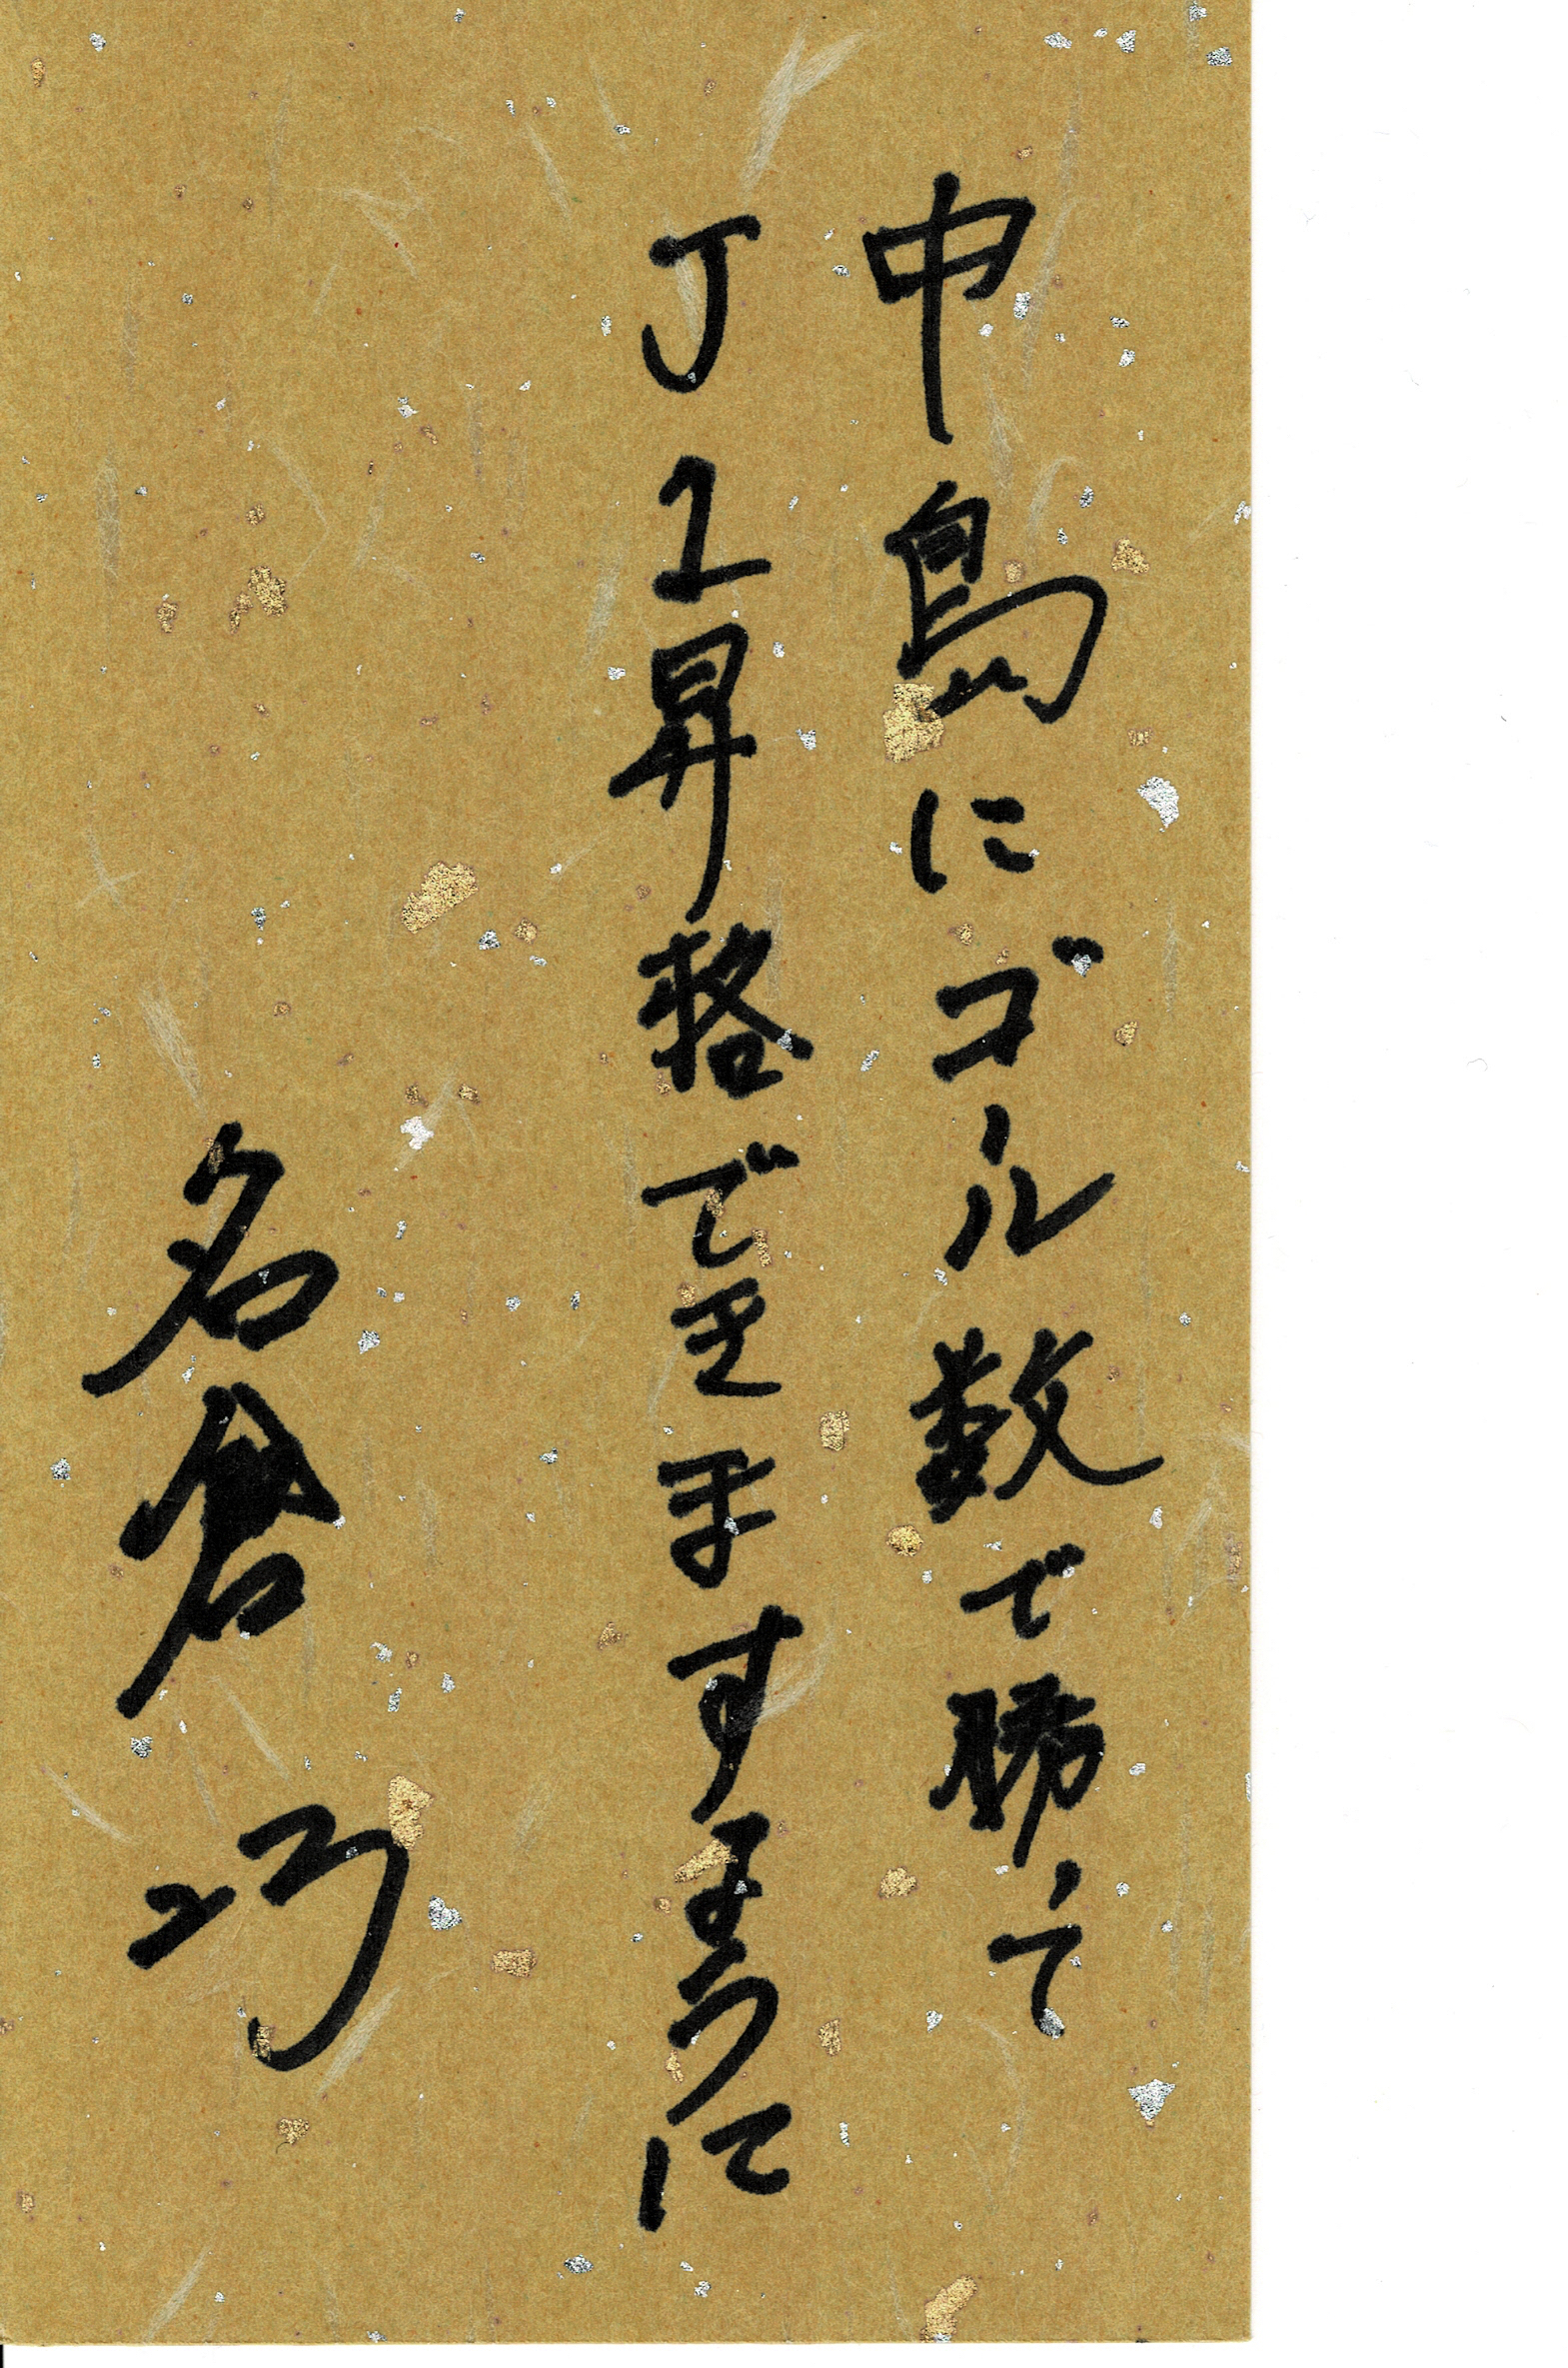 中島にゴール数で勝って
J1昇格できますように
名倉 巧